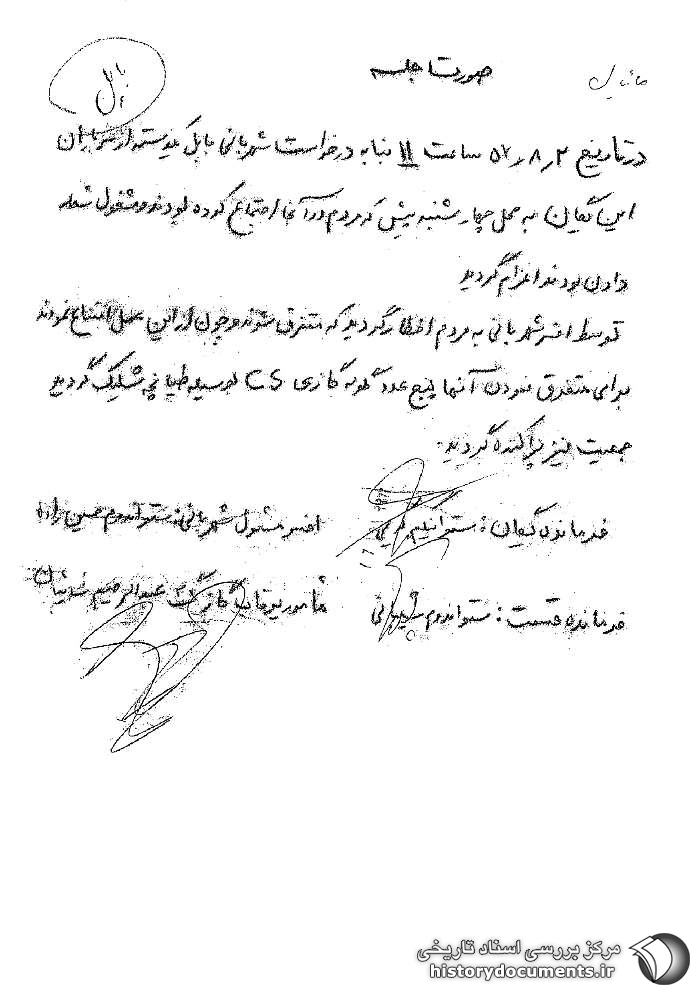 صورتجلسه
بابل
در تاریخ ۵۷٫۸٫۲ ساعت ۱۱ بنا به درخواست شهربانی بابل یکدسته از سربازان
این گردان به محل چهارشنبه پیش که مردم در آنجا اجتماع کرده بودند و مشغول شعار
دادن بودند اعزام گردید
توسط افسر شهربانی به مردم اخطار گردید که متفرق شوند و چون از این عمل امتناع نمودند
برای متفرق نمودن آنها پنج عدد گلوله گازی CS بوسیله طپانچه شلیک گردید
جمعیت نیز پراکنده گردید.
فرمانده گروهان: ستوانیکم افسر مسئول شهربانی: ستواندوم حسین زاده
فرمانده قسمت: ستواندوم مامور پرتاب گاز عبدالرحیم
مرکز بررسی اسناد تاریخی
historydocuments.ir